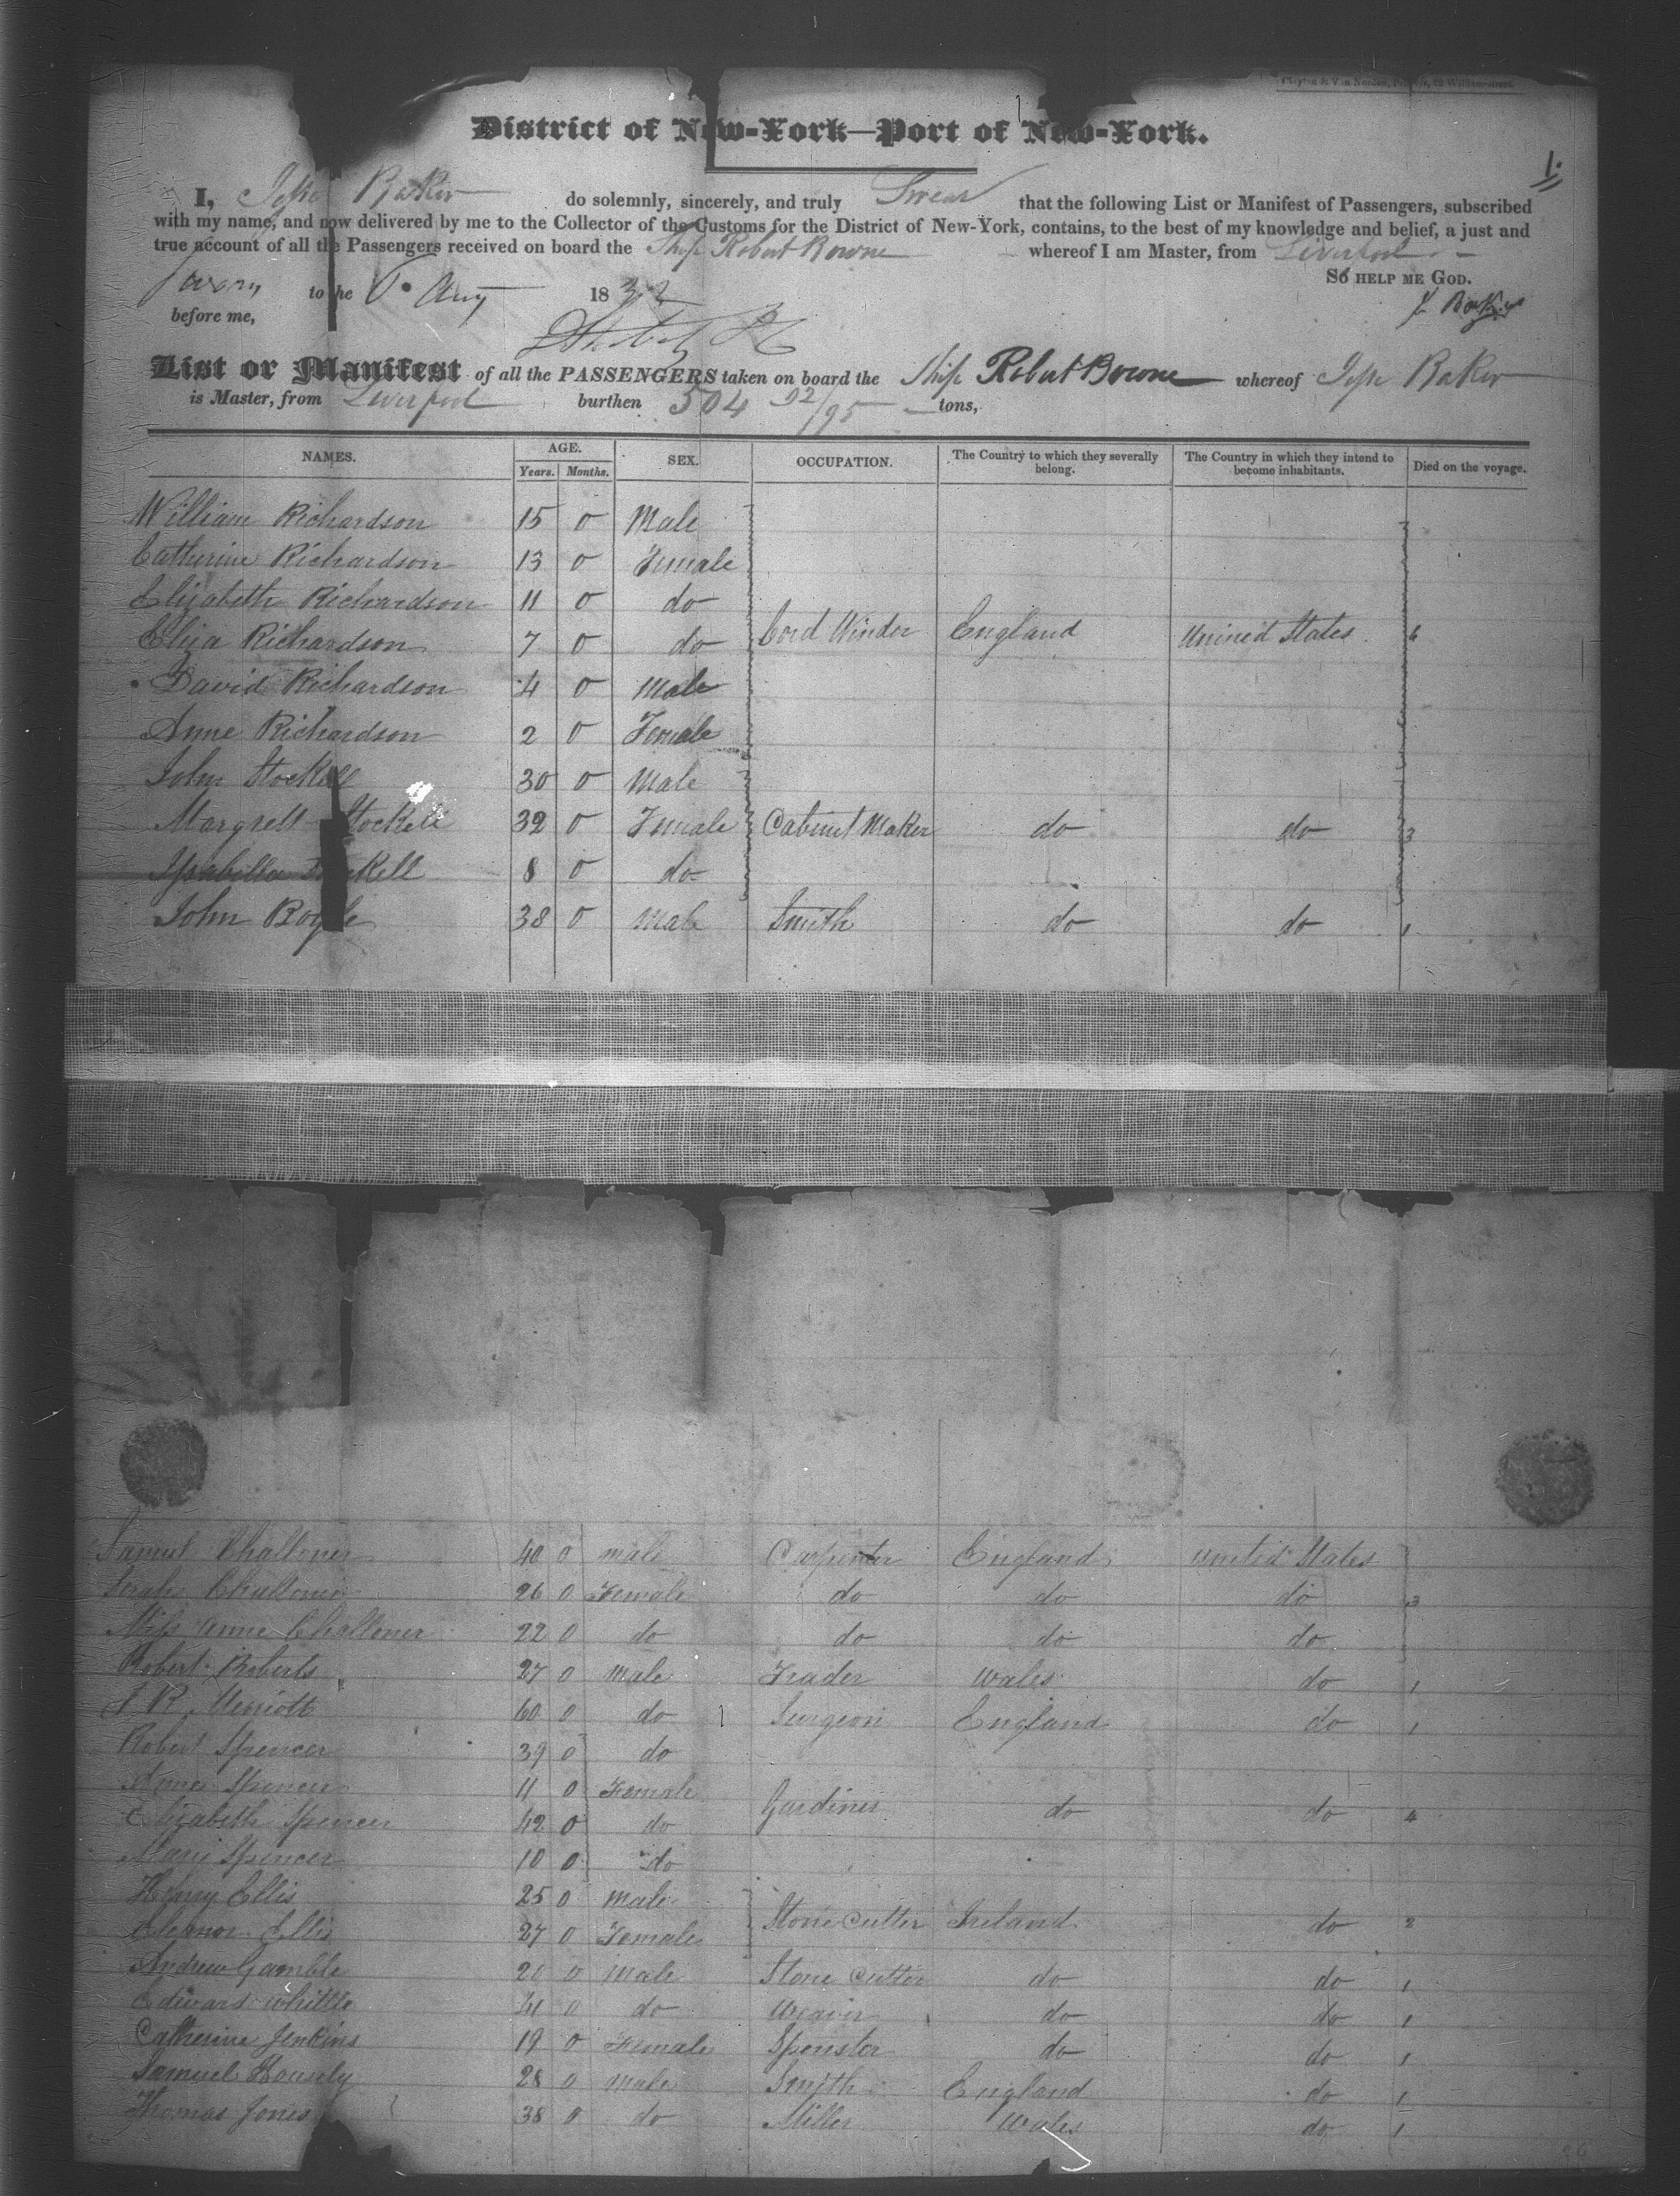 District of New-York—Port of New-York.
1.
I, Jesse Baker do solemnly, sincerely, and truly Swear that the following List or Manifest of Passengers, subscribed
with my name, and now delivered by me to the Collector of the Customs for the District of New-York, contains, to the best of my knowledge and belief, a just and
true account of all the Passengers received on board the Ship Robert Bowne whereof I am Master, from Liverpool
So help me God.
Sworn to the Aug 1832
J Baker
before me,
List or Manifest of all the PASSENGERS taken on board the Ship Robert Bowne whereof Jesse Baker
is Master, from Liverpool burthen 504 92/95 tons,
NAMES. AGE. Years. Months. SEX. OCCUPATION. The Country to which they severally belong. The Country in which they intend to become inhabitants. Died on the voyage.
William Richardson 15 0 Male
Catherine Richardson 13 0 Female
Elizabeth Richardson 11 0 do
Eliza Richardson 7 0 do Cord Winder England United States 6
David Richardson 4 0 Male
Anne Richardson 2 0 Female
John Stockell 30 0 Male
Margrett Stockell 32 0 Female Cabinet Maker do do 3
Ysabilla 8 0 do
John Boyle 38 0 Male Smith do do 1
Samuel Challoner 40 0 male Carpenter England United States
Sarah Challoner 26 0 Female do do do 3
Miss Anne Challoner 22 0 do do do do
Robert Roberts 27 0 male Trader Wales do 1
60 0 do Surgeon England do 1
Robert Spencer 39 0 do
Anne Spencer 11 0 Female
Elizabeth Spencer 42 0 do Gardiner do do 4
Mary Spencer 10 0 do
Henry Ellis 25 0 male
Eleanor Ellis 27 0 Female Stone Cutter Ireland do 2
Andrew Gamble 20 0 Male Stone Cutter do do 1
Edward Whittle 0 do Weaver do do 1
Catherine Jenkins 19 0 Female Spenster do do 1
Samuel Housely 28 0 male Smith England do 1
Thomas Jones 38 0 do Miller Wales do 1